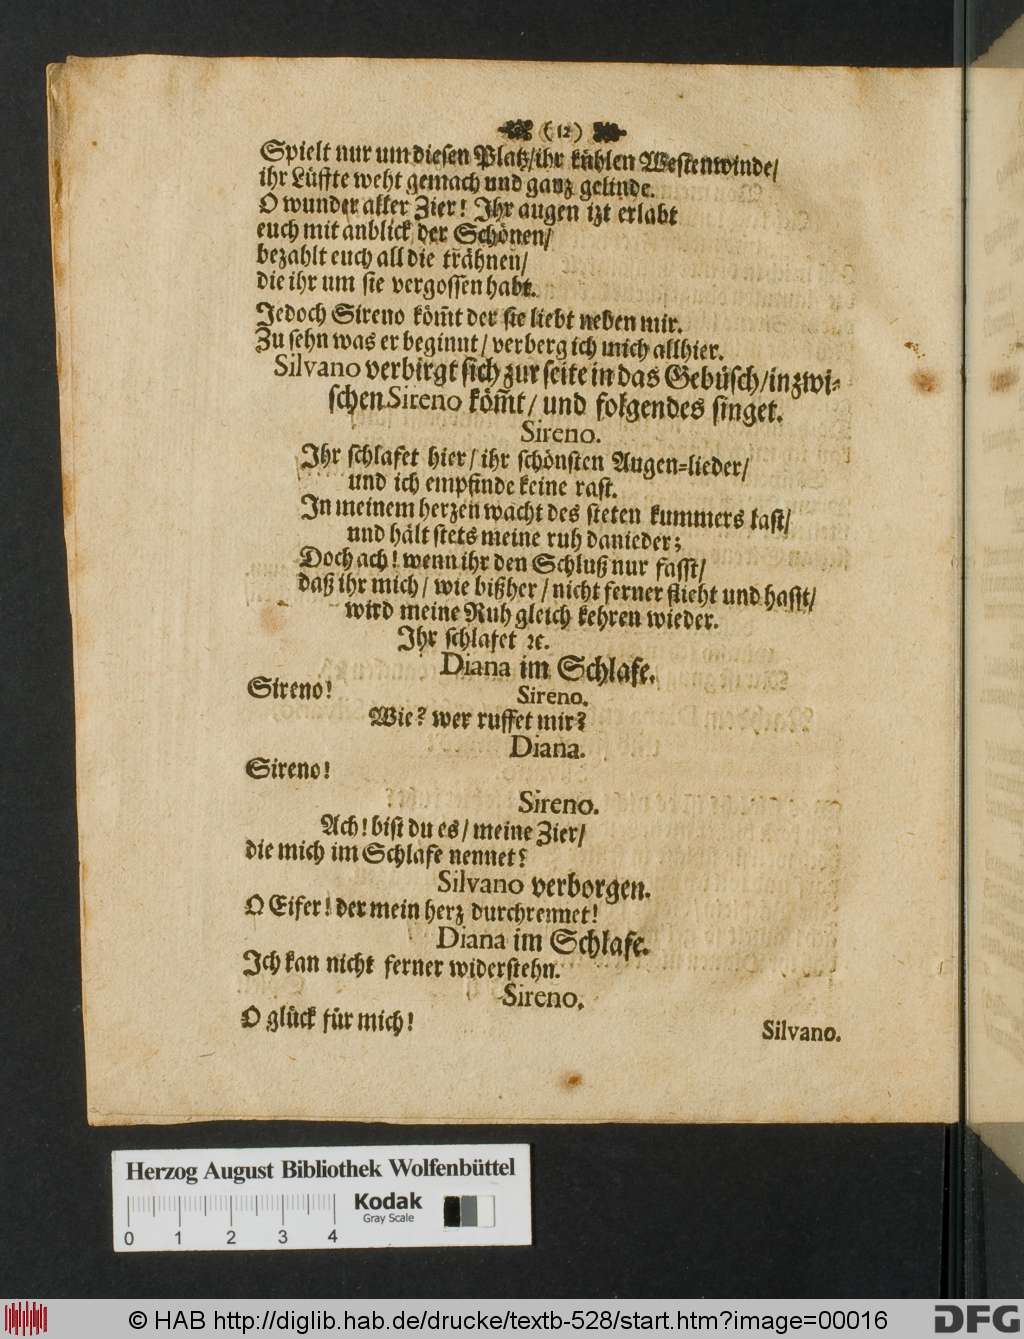 (12)
Spielt nur um diesen Platz/ihr kühlen Westenwinde/
ihr Lüffte weht gemach und ganz gelinde.
O wunder aller Zier! Ihr augen izt erlabt
euch mit anblick der Schönen/
bezahlt euch all die trähnen/
die ihr um sie vergossen habt.
Jedoch Sireno köm̃t der sie liebt neben mir.
Zu sehn was er beginnt/ verberg ich mich allhier.
Silvano verbirgt sich zur seite in das Gebüsch/inzwi-
schen Sireno köm̃t/ und folgendes singet.
Sireno.
Ihr schlafet hier/ ihr schönsten Augen-lieder/
und ich empfinde keine rast.
In meinem herzen wacht des steten kummers last/
und hält stets meine ruh danieder;
Doch ach! wenn ihr den Schluß nur fasst/
daß ihr mich/ wie bißher/ nicht ferner flieht und hasst/
wird meine Ruh gleich kehren wieder.
Ihr schlafet ꝛc.
Diana im Schlafe.
Sireno!
Sireno.
Wie? wer ruffet mir?
Diana.
Sireno!
Sireno.
Ach! bist du es/ meine Zier/
die mich im Schlafe nennet?
Silvano verborgen.
O Eifer! der mein herz durchrennet!
Diana im Schlafe.
Ich kan nicht ferner widerstehn.
Sireno.
O glück für mich!
Silvano.
Herzog August Bibliothek Wolfenbüttel
Kodak
Gray Scale
0 1 2 3 4
© HAB http://diglib.hab.de/drucke/textb-528/start.htm?image=00016
DFG